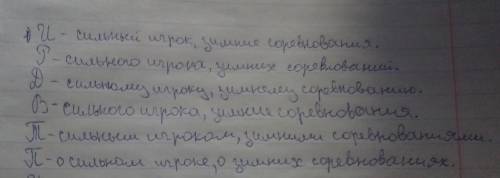 И - сильный игрок, зимние соревнования.
Р - сильного игрока, зимних соревнований.
Д - сильному игроку, зимнему соревнованию.
В - сильного игрока, зимние соревнования.
Т - сильным игроком, зимними соревнованиями.
П - о сильном игроке, о зимних соревнованиях.